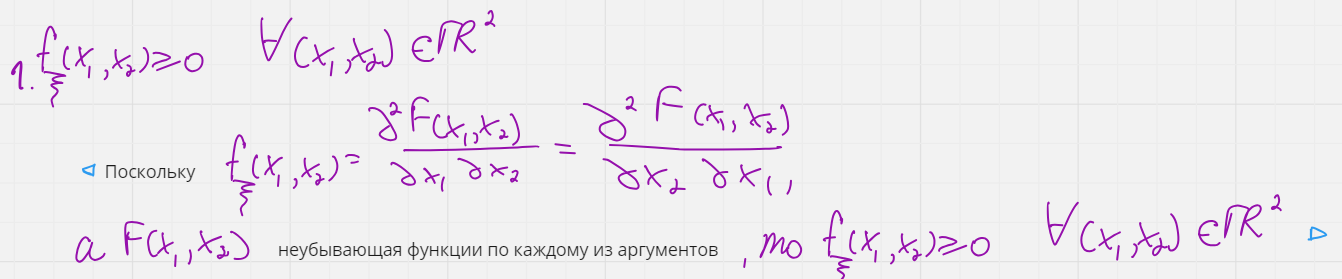 1. f_ξ(x₁,x₂)⩾0 ∀(x₁,x₂)∈ℝ²
Поскольку f_ξ(x₁,x₂)= ∂²F(x₁,x₂)/∂x₁∂x₂ = ∂²F(x₁,x₂)/∂x₂∂x₁,
а F(x₁,x₂) неубывающая функции по каждому из аргументов, то f_ξ(x₁,x₂)⩾0 ∀(x₁,x₂)∈ℝ²